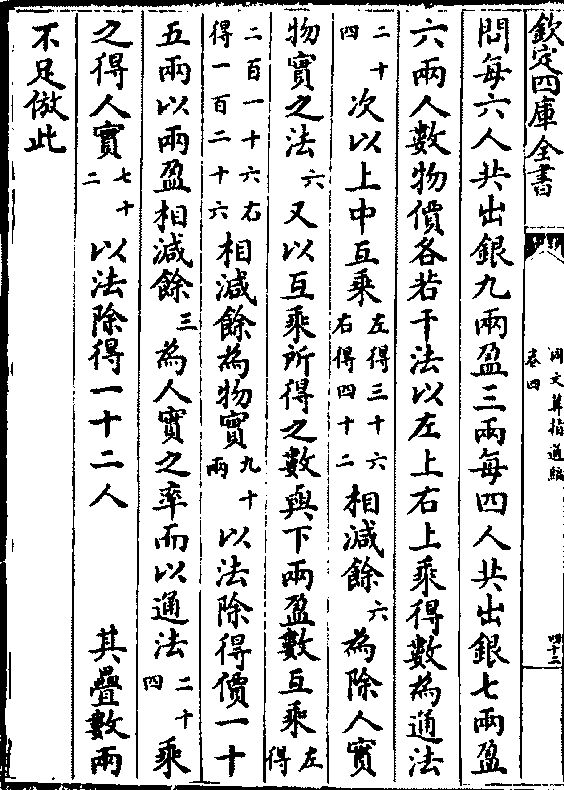 欽定四庫全書
同文算指通編
卷四
四十二
問每六人共出銀九兩盈三兩每四人共出銀七兩盈
六兩人數物價各若干法以左上右上乘得數為通法
二十四次以上中互乘左得三十六右得四十二相減餘六為除人實
物實之法六又以互乘所得之數與下兩盈數互乘左得
二百一十六右得一百二十六相減餘為物實九十兩以法除得價一十
五兩以兩盈相減餘三為人實之率而以通法二十四乘
之得人實七十二以法除得一十二人 其疊數兩
不足倣此